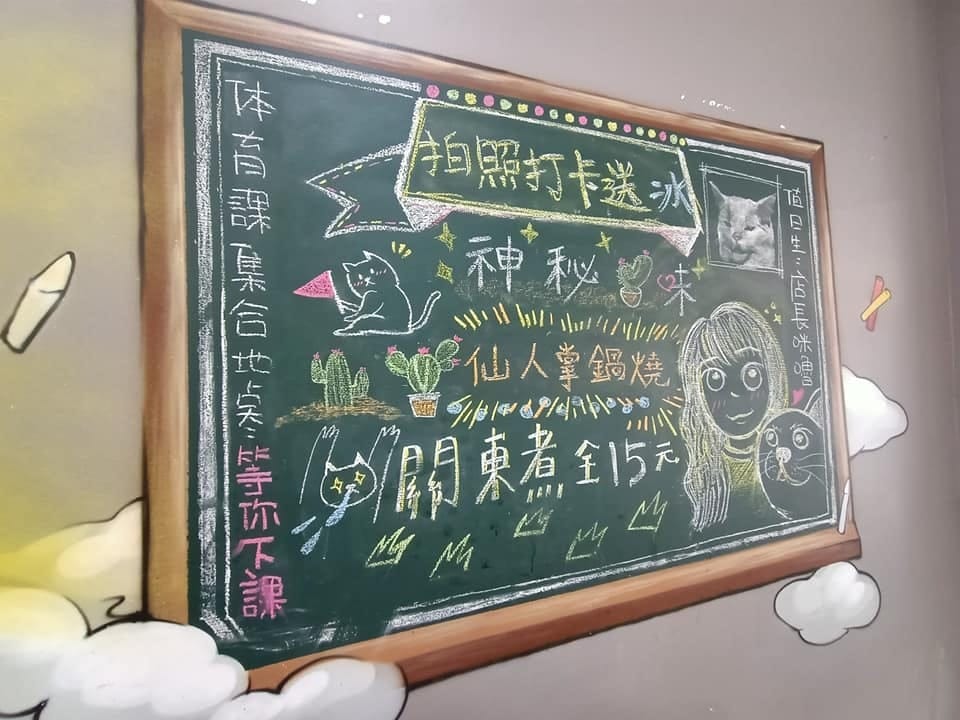 体育課集合地点：等你下課
拍照打卡送冰
神秘味
仙人掌鍋燒
關東煮全15元
值日生：店長咪嚕